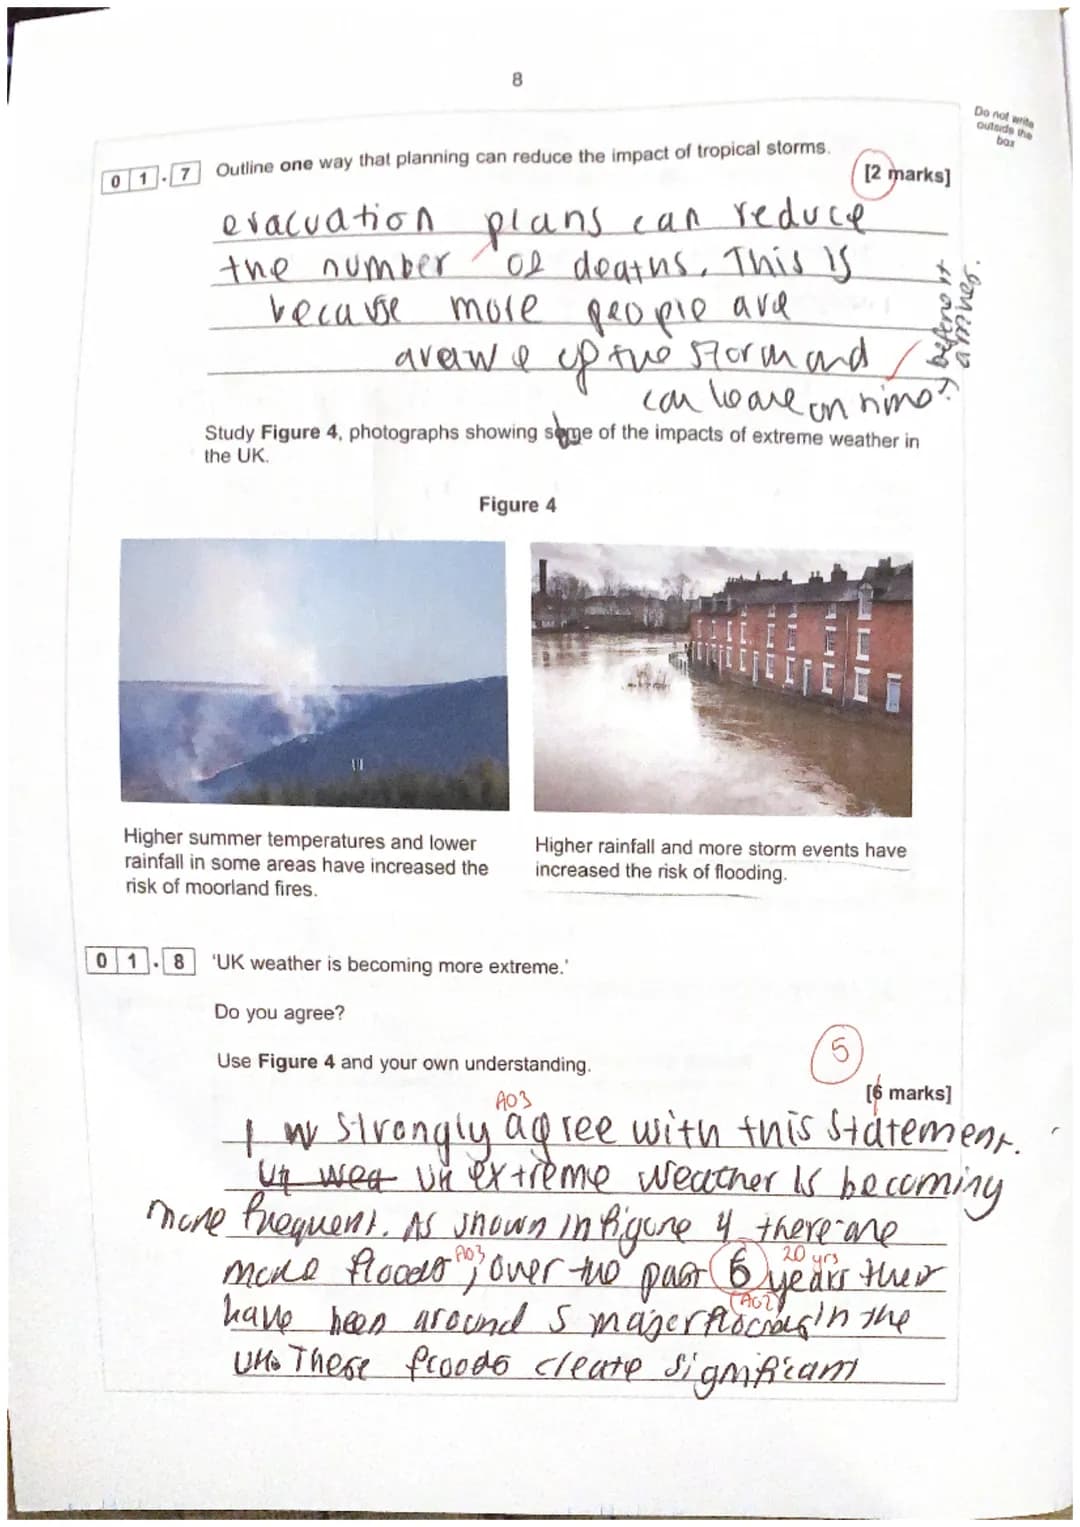 8
Do not write
outside the
box
0 1 . 7 Outline one way that planning can reduce the impact of tropical storms.
[2 marks]
evacuation plans can reduce
the number of deaths. This is
because more people are
aware of the storm and
can leave on time
before it
arrives.
Study Figure 4, photographs showing some of the impacts of extreme weather in
the UK.
Figure 4
Higher summer temperatures and lower
rainfall in some areas have increased the
risk of moorland fires.
Higher rainfall and more storm events have
increased the risk of flooding.
0 1 . 8 'UK weather is becoming more extreme.'
Do you agree?
Use Figure 4 and your own understanding.
5
[6 marks]
AO3
I strongly agree with this statement.
UK extreme weather is becoming
more frequent. As shown in figure 4 there are
AO3 20 yrs
more floods, over the past 6 years their
AO2
have been around 5 major floods in the
UK. These floods create significant